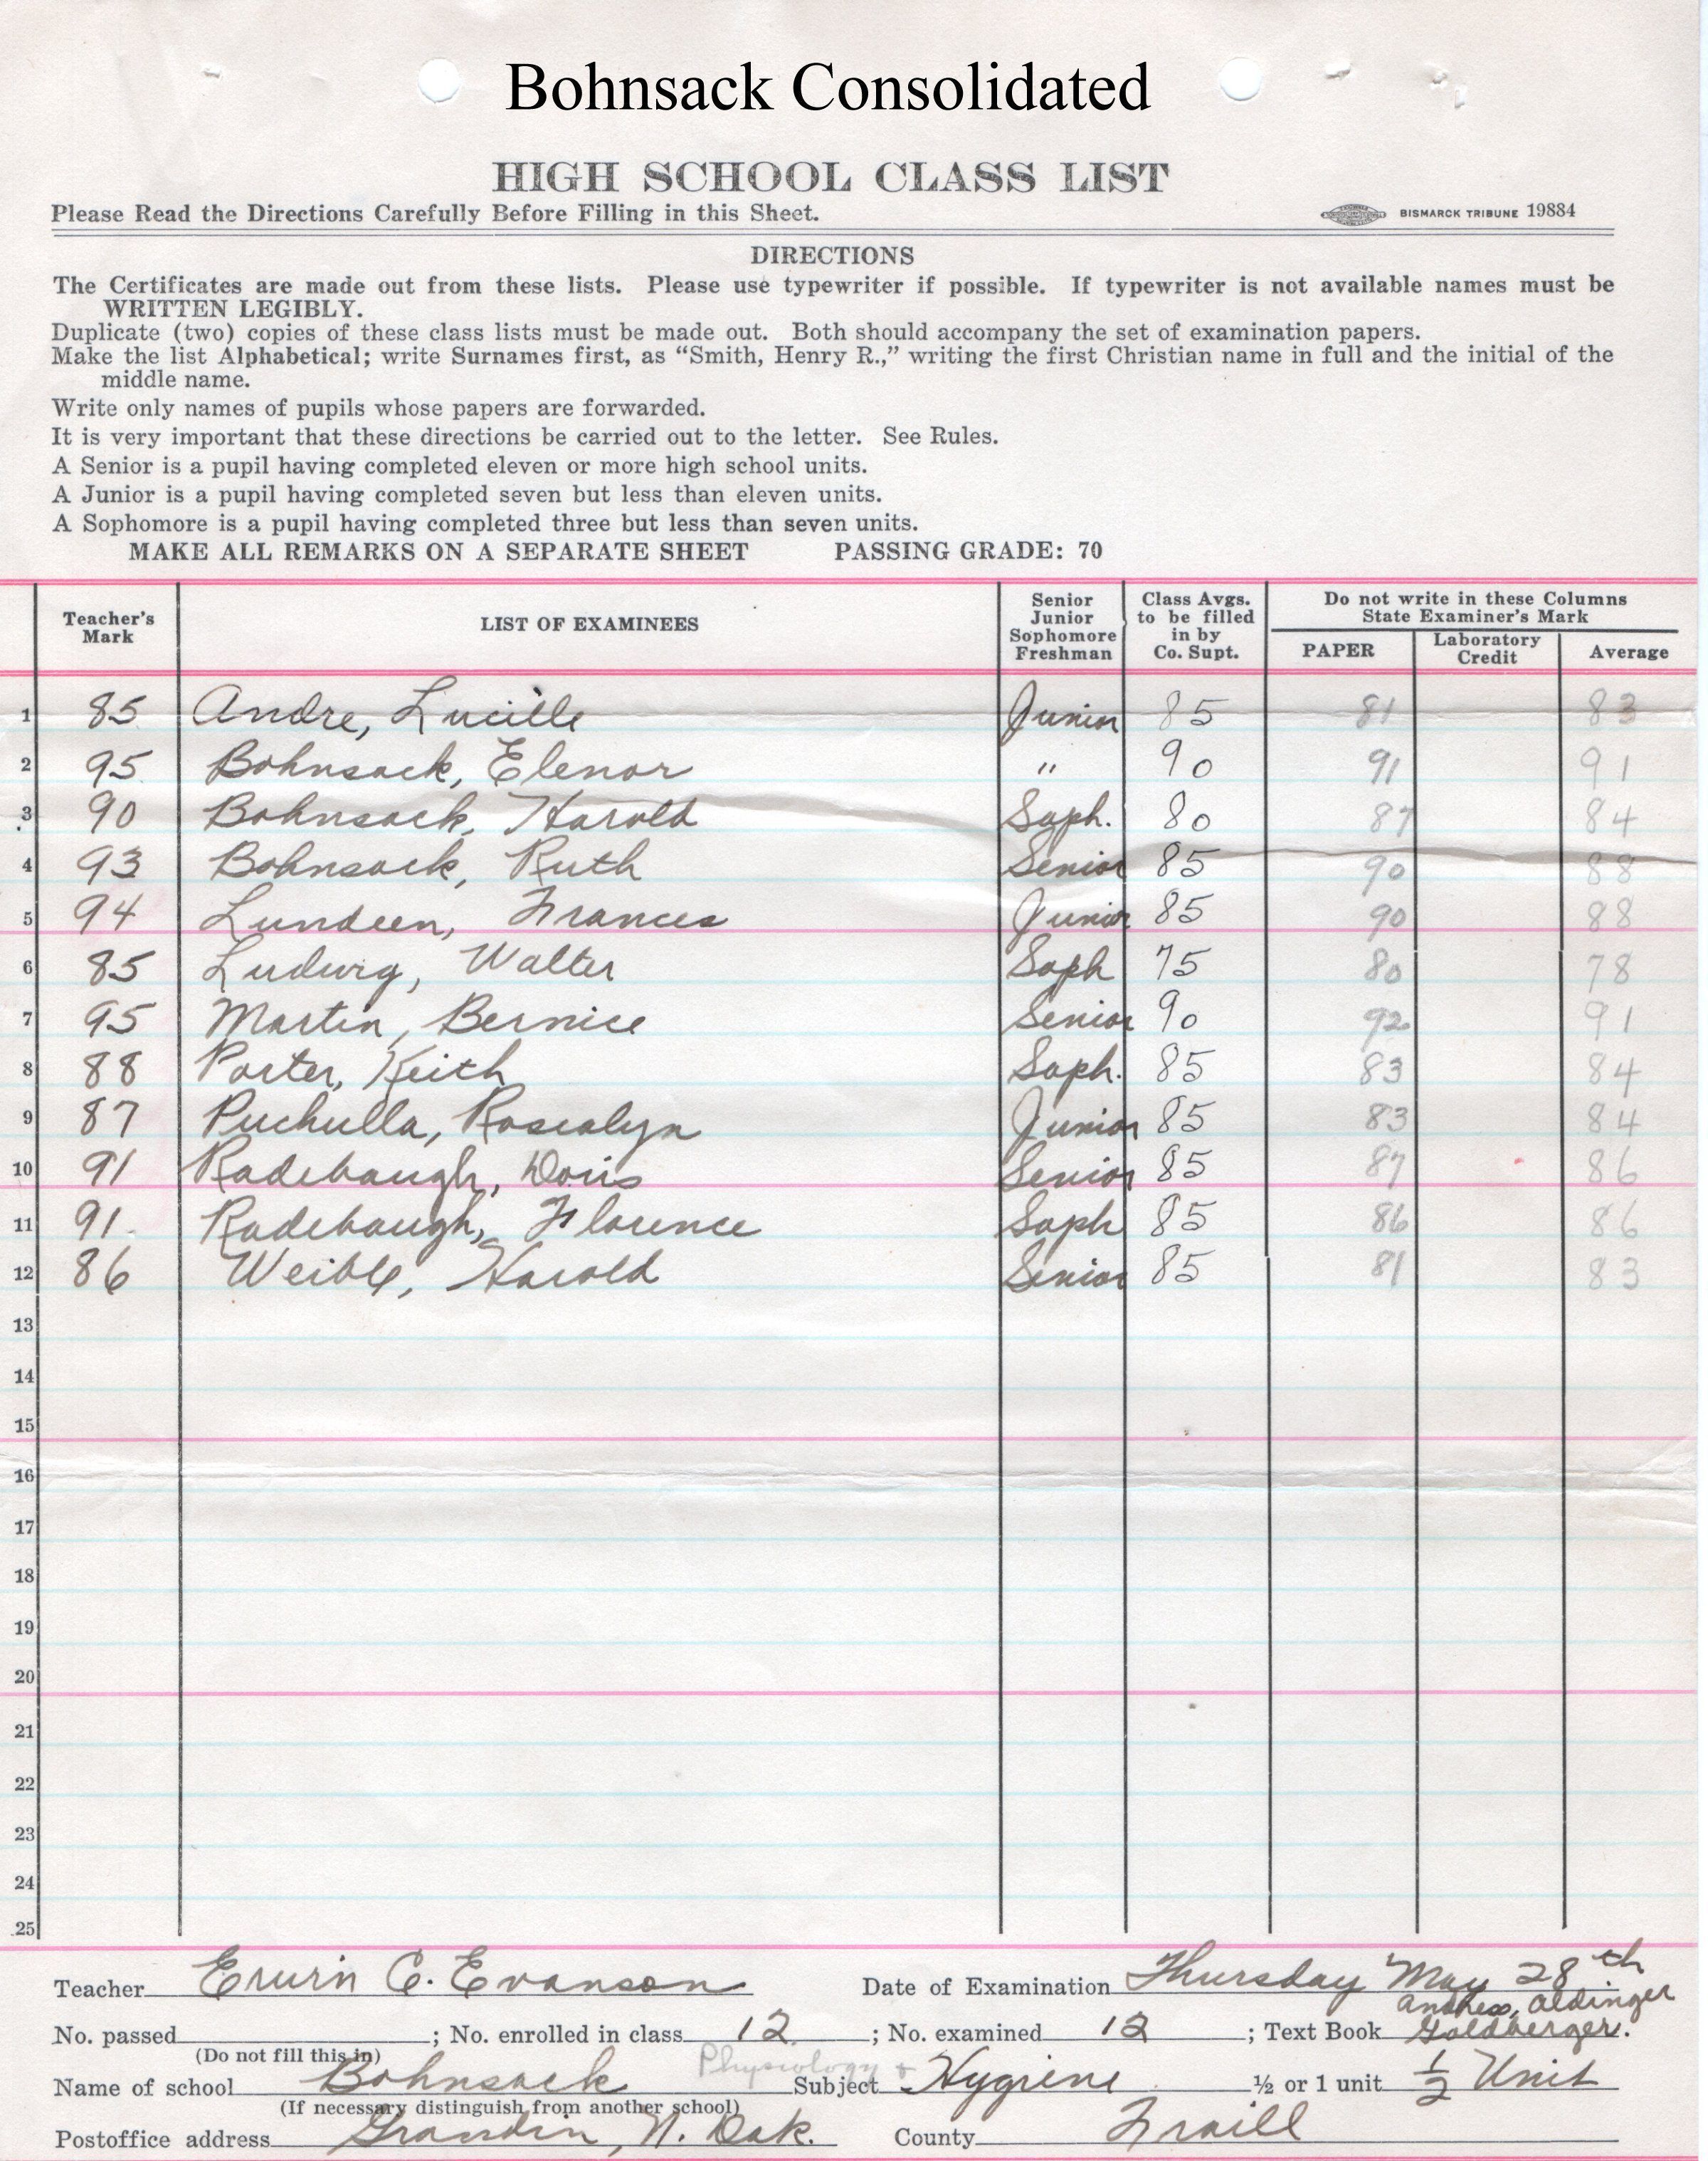 Bohnsack Consolidated
HIGH SCHOOL CLASS LIST
Please Read the Directions Carefully Before Filling in this Sheet. BISMARCK TRIBUNE 19884
DIRECTIONS
The Certificates are made out from these lists. Please use typewriter if possible. If typewriter is not available names must be
WRITTEN LEGIBLY.
Duplicate (two) copies of these class lists must be made out. Both should accompany the set of examination papers.
Make the list Alphabetical; write Surnames first, as “Smith, Henry R.,” writing the first Christian name in full and the initial of the
middle name.
Write only names of pupils whose papers are forwarded.
It is very important that these directions be carried out to the letter. See Rules.
A Senior is a pupil having completed eleven or more high school units.
A Junior is a pupil having completed seven but less than eleven units.
A Sophomore is a pupil having completed three but less than seven units.
MAKE ALL REMARKS ON A SEPARATE SHEET PASSING GRADE: 70
Teacher's Mark LIST OF EXAMINEES Senior Junior Sophomore Freshman Class Avgs. to be filled in by Co. Supt. Do not write in these Columns State Examiner's Mark PAPER Laboratory Credit Average
1 85 Andre, Lucille Junior 85 81 83
2 95 Bohnsack, Elenor " 90 91 91
3 90 Bohnsack, Harold Soph. 80 87 84
4 93 Bohnsack, Ruth Senior 85 90 88
5 94 Lundeen, Frances Junior 85 90 88
6 85 Ludwig, Walter Soph 75 80 78
7 95 Martin, Bernice Senior 90 92 91
8 88 Porter, Keith Soph. 85 83 84
9 87 Puchulla, Roscalyn Junior 85 83 84
10 91 Radebaugh, Doris Senior 85 87 86
11 91 Radebaugh, Florence Soph 85 86 86
12 86 Weible, Harold Senior 85 81 83
13
14
15
16
17
18
19
20
21
22
23
24
25
Teacher Erwin C. Evanson Date of Examination Thursday May 28th
Andress, Aldinger
No. passed ; No. enrolled in class 12 ; No. examined 12 ; Text Book Goldberger.
(Do not fill this in)
Name of school Bohnsack Physiology + Subject Hygiene ½ or 1 unit ½ Unit
(If necessary distinguish from another school)
Postoffice address Grandin, N. Dak. County Traill